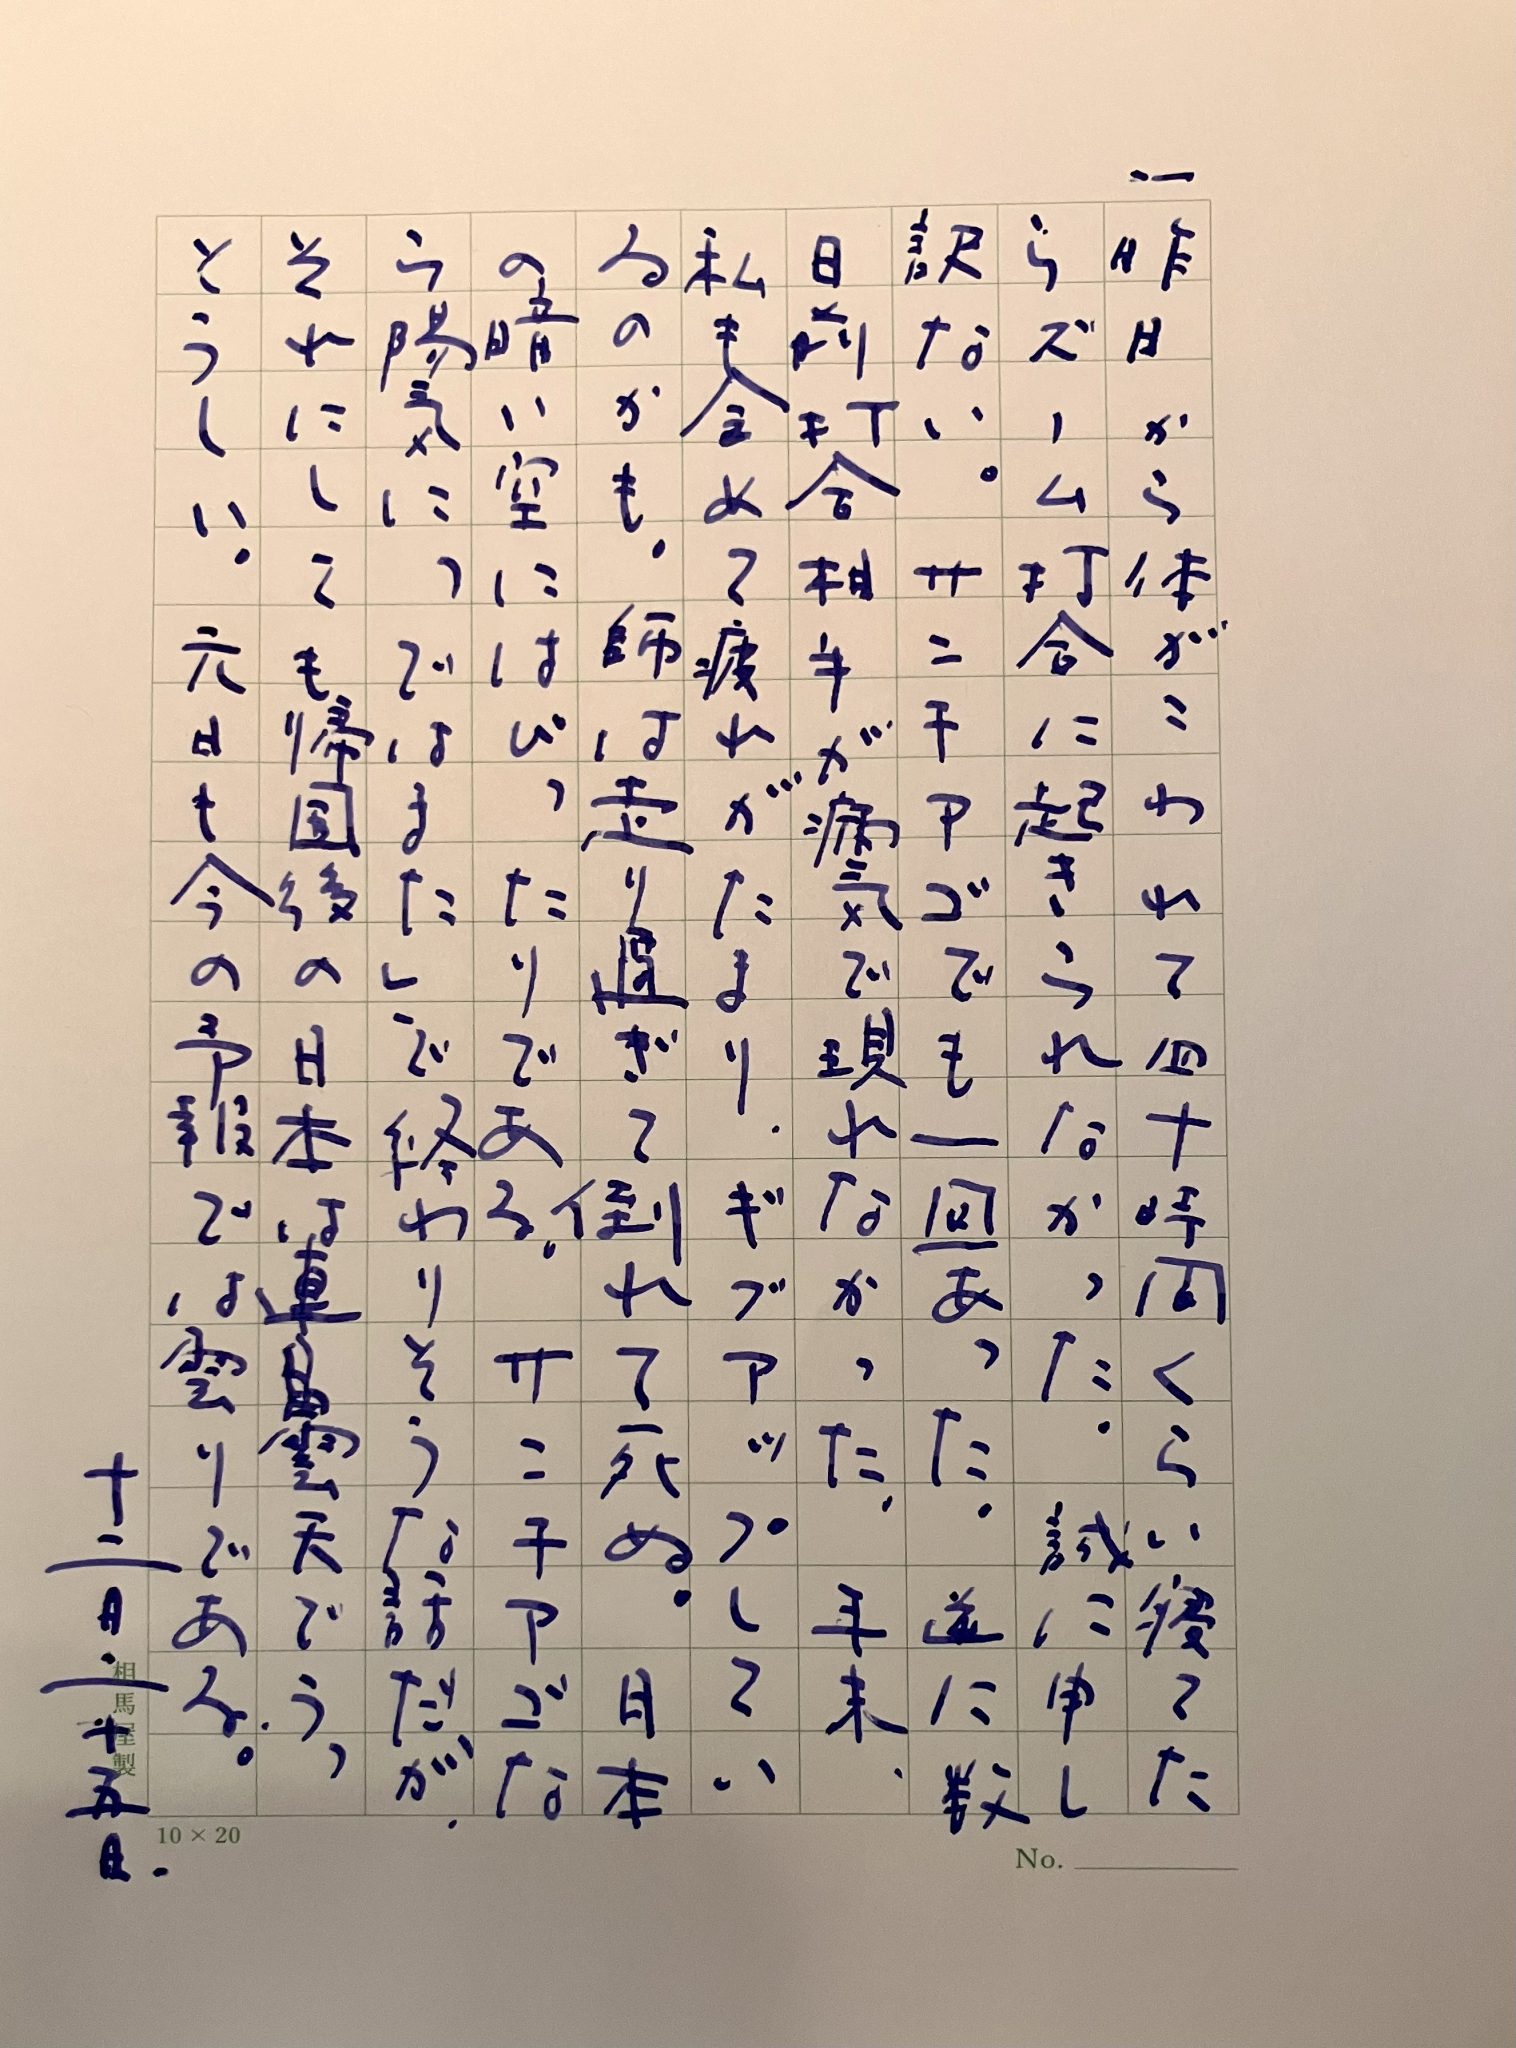 二
昨日から体がこわれて四十時間くらい寝てた
らズーム打合に起きられなかった。誠に申し
訳ない。サニチアゴでも一回あった。逆に数
日前打合相手が病気で現れなかった。年末、
私も含めて疲れがたまり、ギブアップしてい
るのかも。師は走り過ぎて倒れて死ぬ。日本
の暗い空にはぴったりである。サニチアゴな
ら陽気にってはまたしで終わりそうな話だが、
それにしても帰国後の日本は連日曇天でう、
とうしい。元日も今の予報では雲りである。
十二月二十五日
相馬屋製
10×20
No.